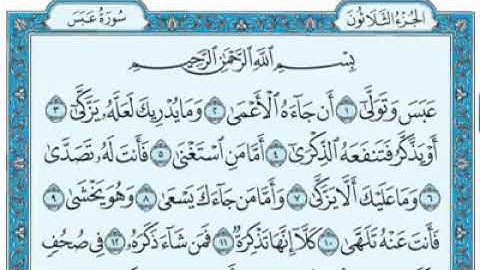 سُورَةُ عَبَسَ الجُزْءُ الثَّلَاثُونَ
بِسْمِ اللَّهِ الرَّحْمَٰنِ الرَّحِيمِ
عَبَسَ وَتَوَلَّىٰٓ ١ أَن جَآءَهُ ٱلْأَعْمَىٰ ٢ وَمَا يُدْرِيكَ لَعَلَّهُۥ يَزَّكَّىٰٓ ٣
أَوْ يَذَّكَّرُ فَتَنفَعَهُ ٱلذِّكْرَىٰٓ ٤ أَمَّا مَنِ ٱسْتَغْنَىٰ ٥ فَأَنتَ لَهُۥ تَصَدَّىٰ
٦ وَمَا عَلَيْكَ أَلَّا يَزَّكَّىٰ ٧ وَأَمَّا مَن جَآءَكَ يَسْعَىٰ ٨ وَهُوَ يَخْشَىٰ ٩
فَأَنتَ عَنْهُ تَلَهَّىٰ ١٠ كَلَّآ إِنَّهَا تَذْكِرَةٌ ١١ فَمَن شَآءَ ذَكَرَهُۥ ١٢ فِى صُحُفٍ